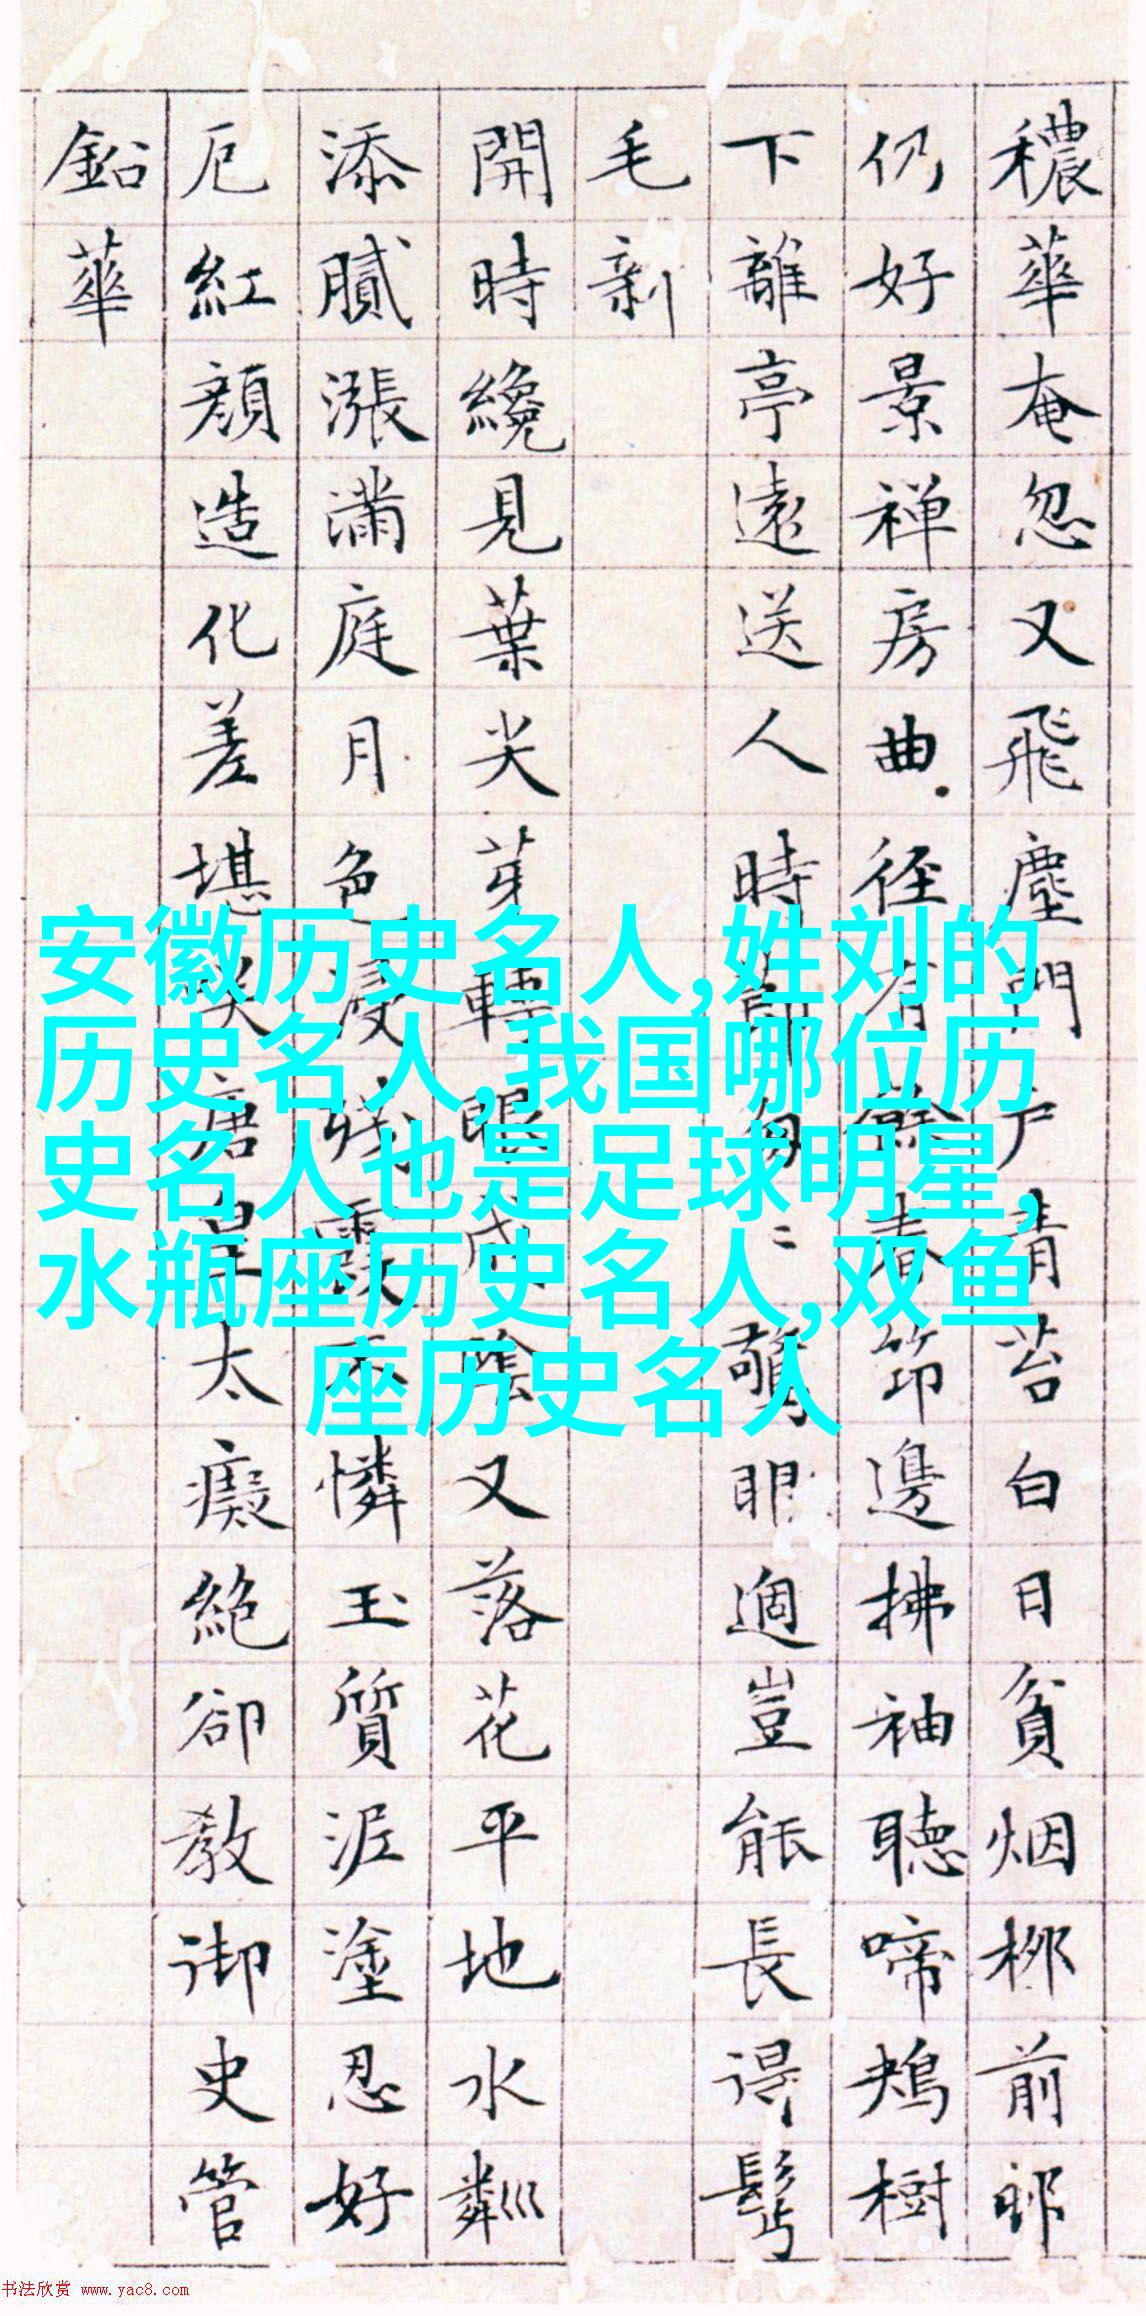 穠華奄忽又飛塵門戶青苔白日貧烟柳前
仍好景禅房曲径有餘春筇邊拂袖聽啼鴂樹
下離亭遠送人時節匆〻驚眼過豈能長得鬢
毛新
開時纔見葉尖芽轉眼成陰又落花平地水粼巛
添膩漲滿庭月色浸殘霞不憐玉質泥塗忍好
厄紅顔造化差堪笑唐皇太癡絕卻教御史管
鉛華
安徽历史名人,姓刘的
历史名人,我国哪位历
史名人也是足球明星,
水瓶座历史名人,双鱼
座历史名人
书法欣赏 www.yac8.com